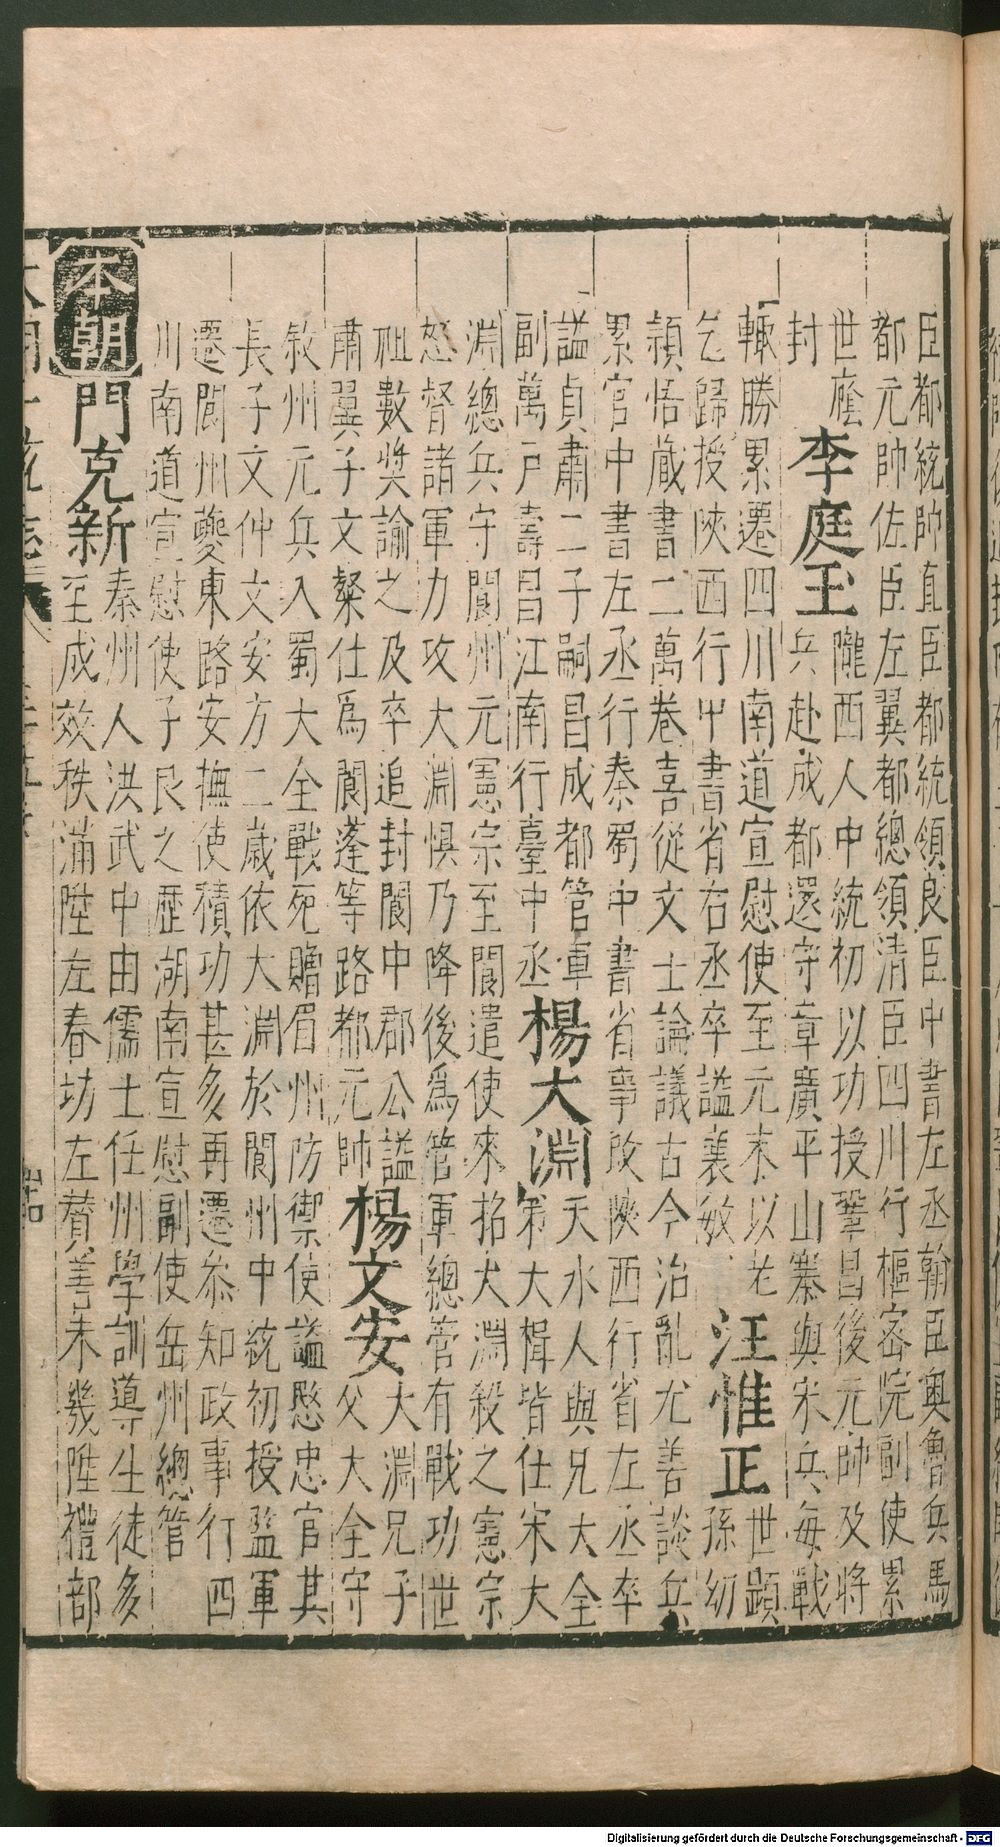 臣都統帥直臣都統領良臣中書左丞翰臣奧魯兵馬
都元帥佐臣左翼都總領清臣四川行樞密院副使累
世䕃
封
李庭玉
隴西人中統初以功授鞏昌後元帥及將
兵赴成都還守章廣平山寨與宋兵每戰
輒勝累遷四川南道宣慰使至元末以老
乞歸授陝西行中書省右丞卒謚襄敏
汪惟正
世顯
孫幼
頴悟蔵書二萬卷喜從文士論議古今治亂尤善談兵
累官中書左丞行秦蜀中書省事改陝西行省左丞卒
謚貞肅二子嗣昌成都管軍
副萬戸壽昌江南行臺中丞
楊大淵
天水人與兄大全
弟大楫皆仕宋大
淵總兵守閬州元憲宗至閬遣使來招大淵殺之憲宗
怒督諸軍力攻大淵惧乃降後爲管軍總管有戰功世
祖數奬諭之及卒追封閬中郡公謚
肅翼子文粲仕爲閬蓬等路都元帥
楊文安
大淵兄子
父大全守
敘州元兵入蜀大全戰死贈眉州防禦使謚愍忠官其
長子文仲文安方二歳依大淵於閬州中統初授監軍
遷閬州夔東路安撫使積功甚多再遷叅知政事行四
川南道宣慰使子艮之歴湖南宣慰副使岳州總管
本朝
門克新
秦州人洪武中由儒士任州學訓導生徒多
至成效秩滿陞左春坊左賛善未幾陞禮部
Digitalisierung gefördert durch die Deutsche Forschungsgemeinschaft - DFG